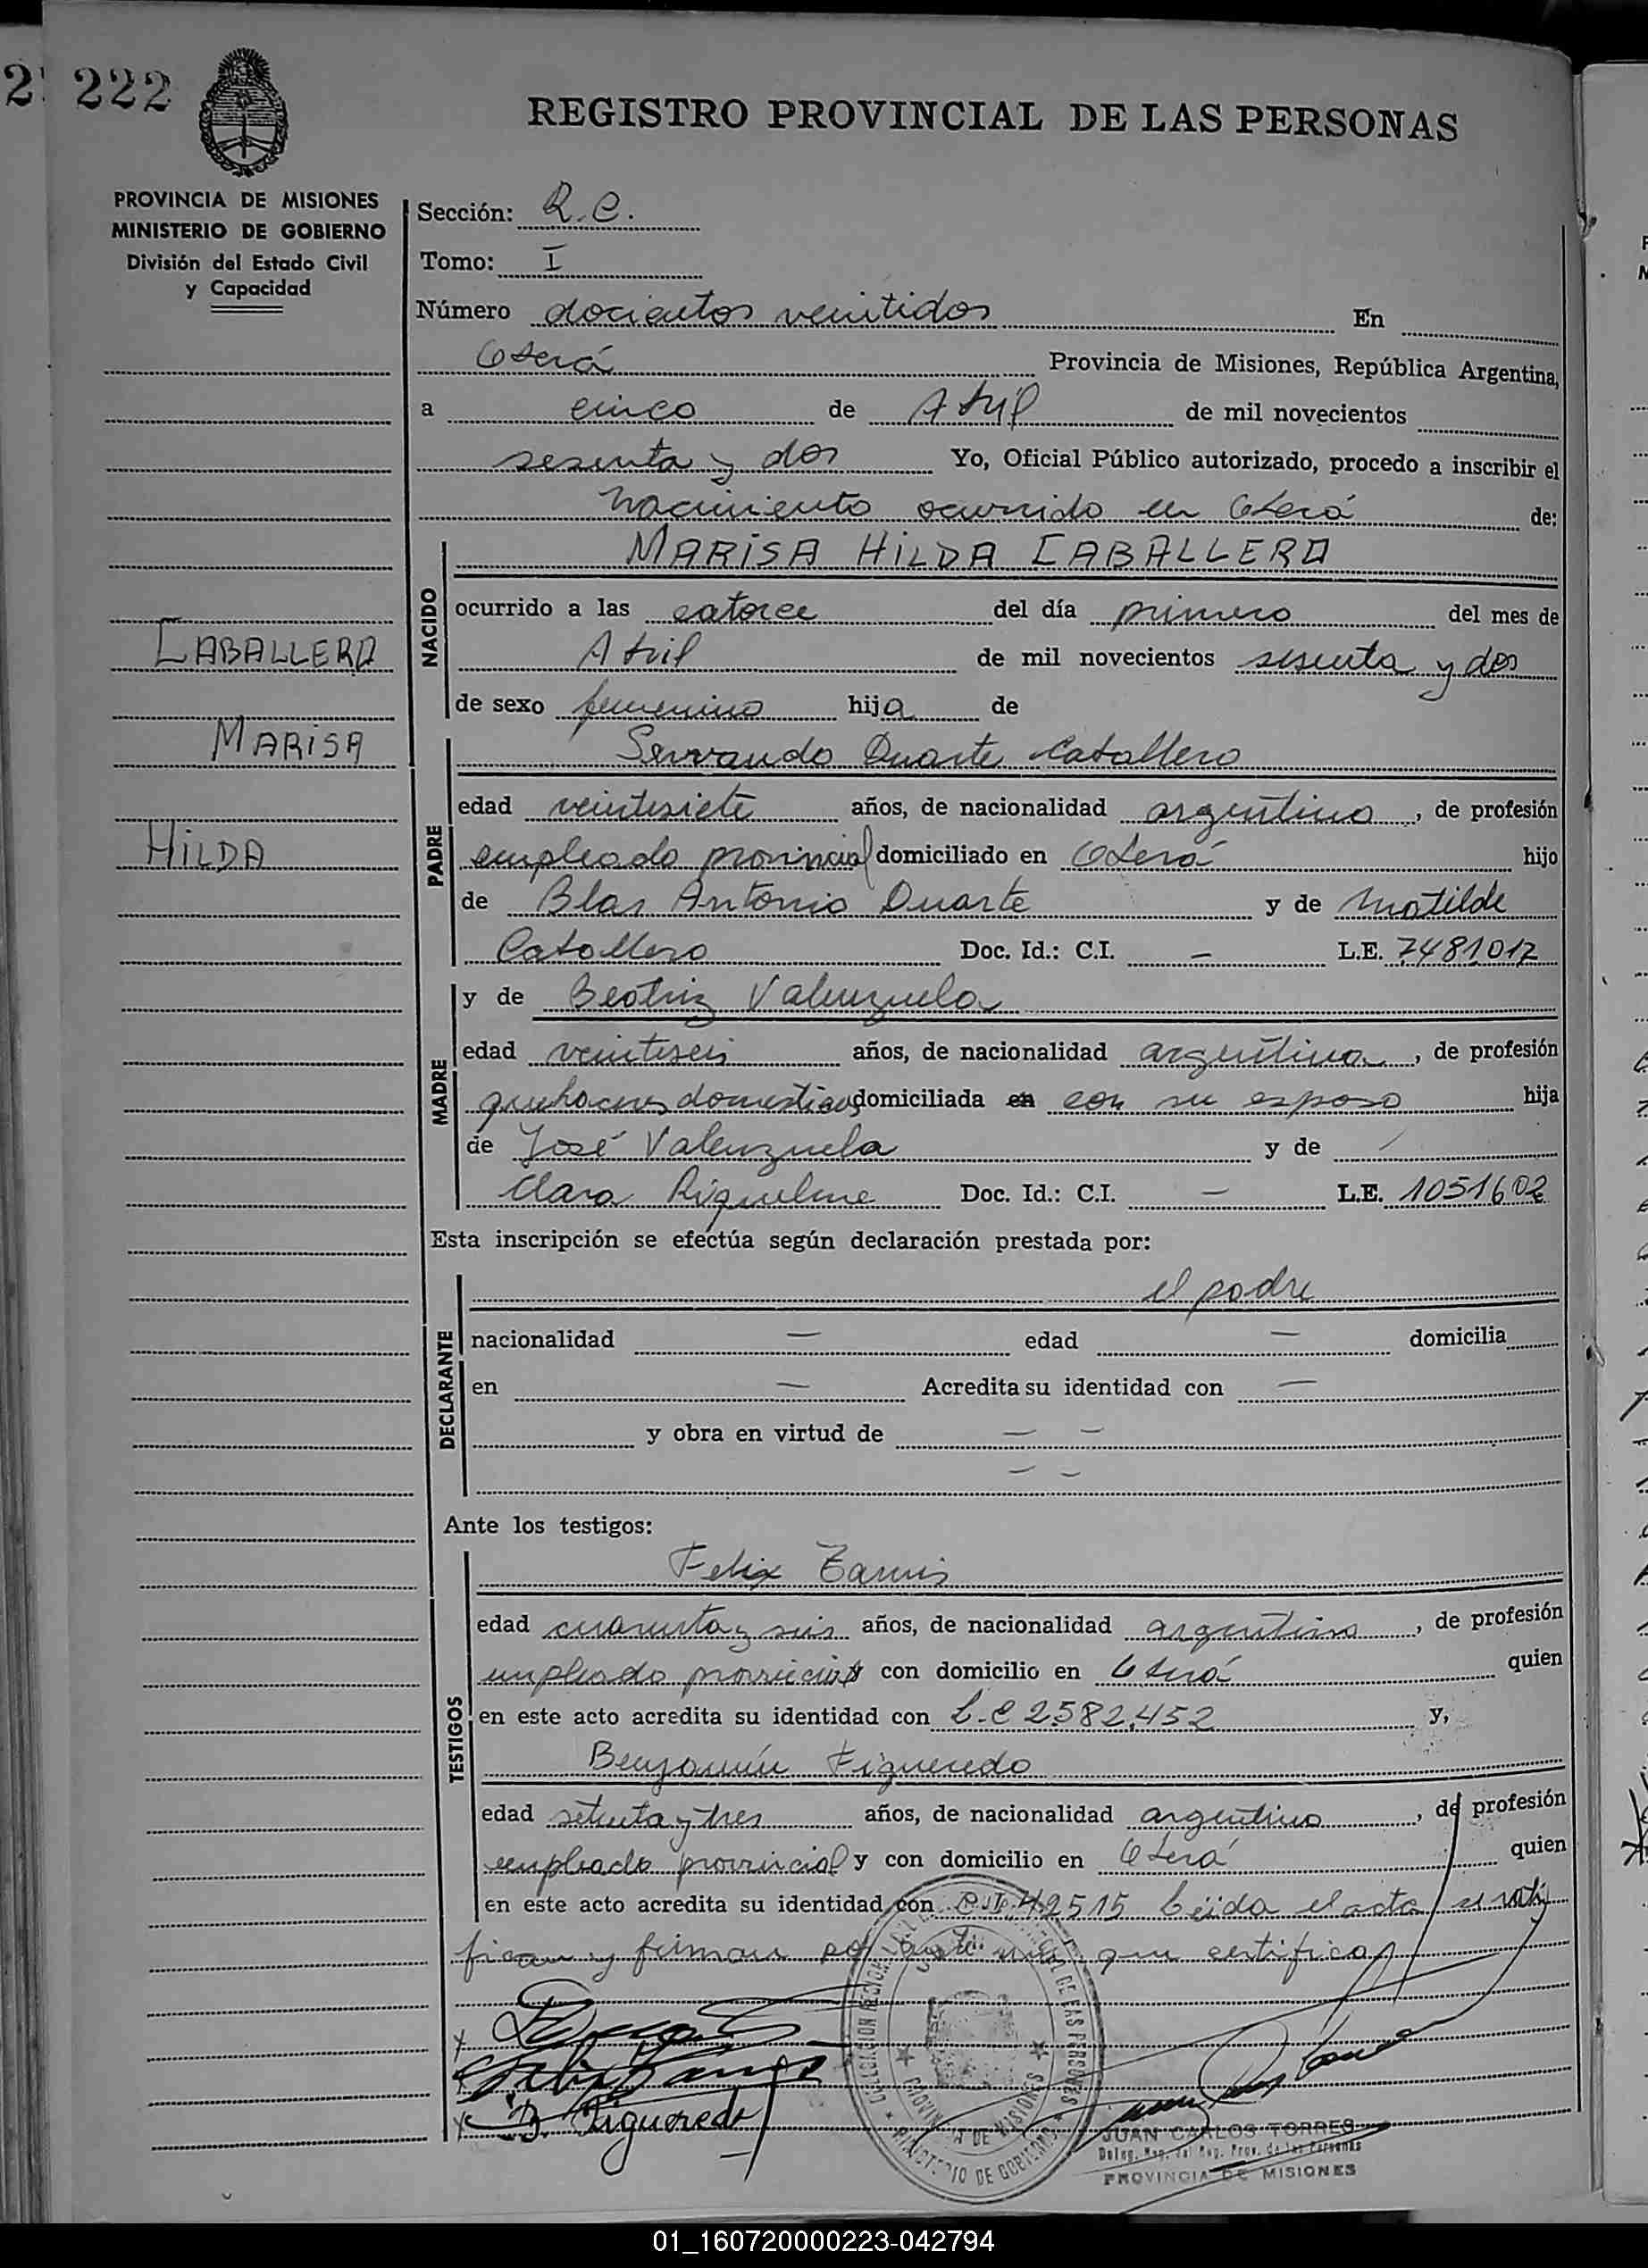 222
REGISTRO PROVINCIAL DE LAS PERSONAS
PROVINCIA DE MISIONES
MINISTERIO DE GOBIERNO
División del Estado Civil
y Capacidad
Sección: R.C.
Tomo: I
Número docientos veintidos En
Oberá Provincia de Misiones, República Argentina,
a cinco de Abril de mil novecientos
sesenta y dos Yo, Oficial Público autorizado, procedo a inscribir el
nacimiento ocurrido en Oberá de:
CABALLERO
MARISA
HILDA
NACIDO
MARISA HILDA CABALLERO
ocurrido a las catorce del día primero del mes de
Abril de mil novecientos sesenta y dos
de sexo femenino hija de
PADRE
Servando Duarte Caballero
edad veintesiete años, de nacionalidad argentino, de profesión
empleado provincial domiciliado en Oberá hijo
de Blas Antonio Duarte y de Matilde
Caballero Doc. Id.: C.I. — L.E. 7481012
MADRE
y de Beatriz Valenzuela
edad veinteseis años, de nacionalidad argentina, de profesión
quehaceres domesticos domiciliada en con su esposo hija
de José Valenzuela y de
Clara Riquelme Doc. Id.: C.I. — L.E. 1051602
Esta inscripción se efectúa según declaración prestada por:
DECLARANTE
el padre
nacionalidad — edad — domicilia
en — Acredita su identidad con —
y obra en virtud de — —
— —
Ante los testigos:
TESTIGOS
Felix
edad cuarenta y seis años, de nacionalidad argentino, de profesión
empleado provincial con domicilio en Oberá quien
en este acto acredita su identidad con L.E 2.582.452 y,
Benjamín Figueredo
edad setenta y tres años, de nacionalidad argentino, de profesión
empleado provincial y con domicilio en Oberá quien
en este acto acredita su identidad con C.I. 42515 Leida el acta se rati
fican y firman por ante mi que certifico
B. Figueredo
PROVINCIA DE MISIONES
MINISTERIO DE GOBIERNO
JUAN CARLOS TORRES
Deleg. Reg. del Reg. Prov. de las Personas
PROVINCIA DE MISIONES
01_160720000223-042794